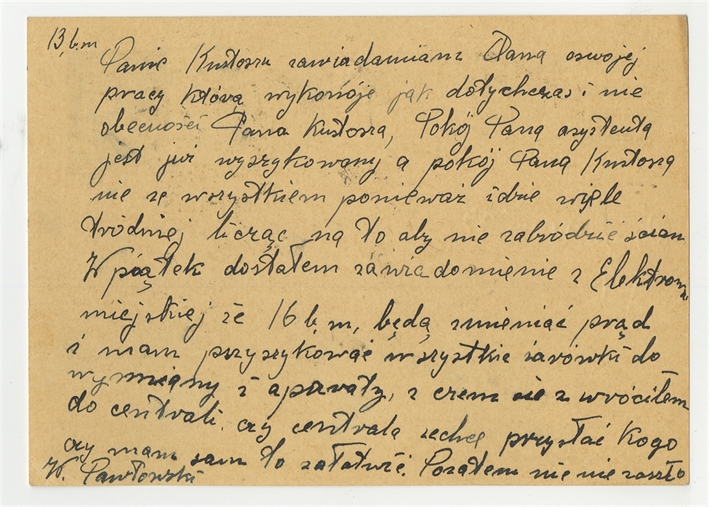 13, b.m
Panie Kustoszu zawiadamiam Pana oswojej
pracy którą wykonóje jak dotychczas i nie
obecności Pana Kustosza, Pokój Pana asystenta
jest już wyszykowany a pokój Pana Kustosza
nie ze wszystkiem ponieważ idzie wiele
tródniej licząc na to aby nie zabródzić ścian
W piątek dostałem zawiadomienie z Elektrow.
miejskiej że 16 b.m, będą zmieniać prąd
i mam przyszykować wszystkie żarówki do
wymiany i aparaty, z czem sie zwróciłem
do centrali, czy centrala zechce przysłać kogo
czy mam sam to załatwić. Pozatem nic nie zaszło
W. Pawłowski